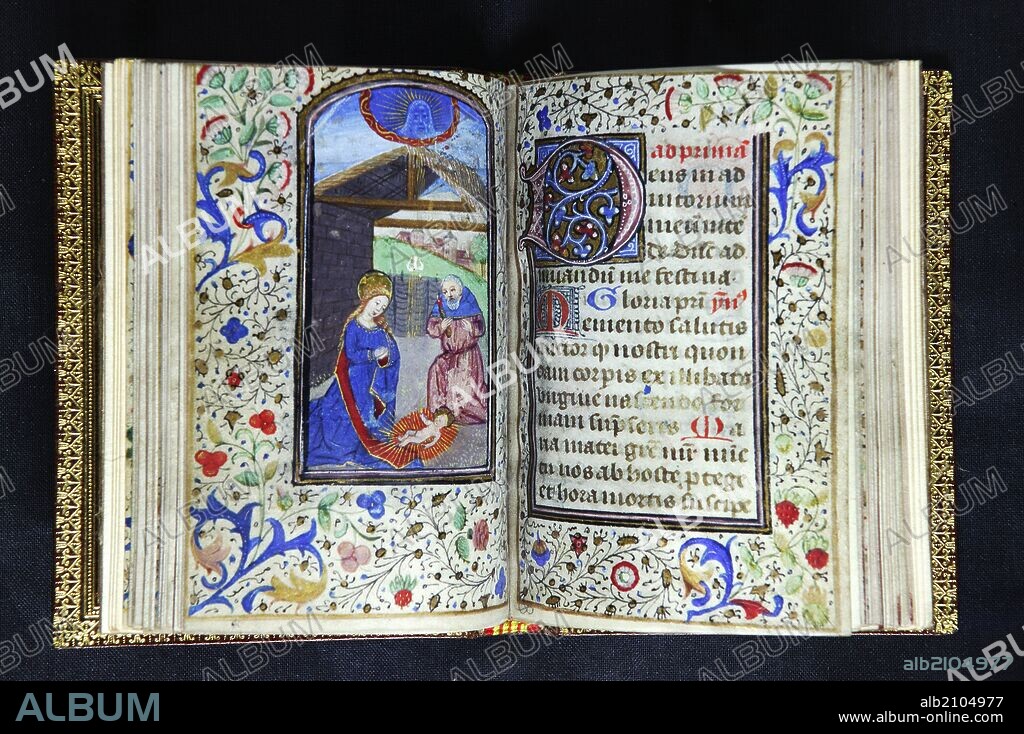 ad primā
Deus in ad
iutorium
meū inte
de. Dñe ad
iuuandū me festina
Gloria pr̄i
Memento salutis
auctor qͥ nostri quon
dam corpis ex illibata
uirgine nascendo for
mam sūpseris Ma
ria mater gr̄e mr̄ mie
tu nos ab hoste ꝓtege
et hora mortis suscipe
ALBUM
alb2104977
www.album-online.com